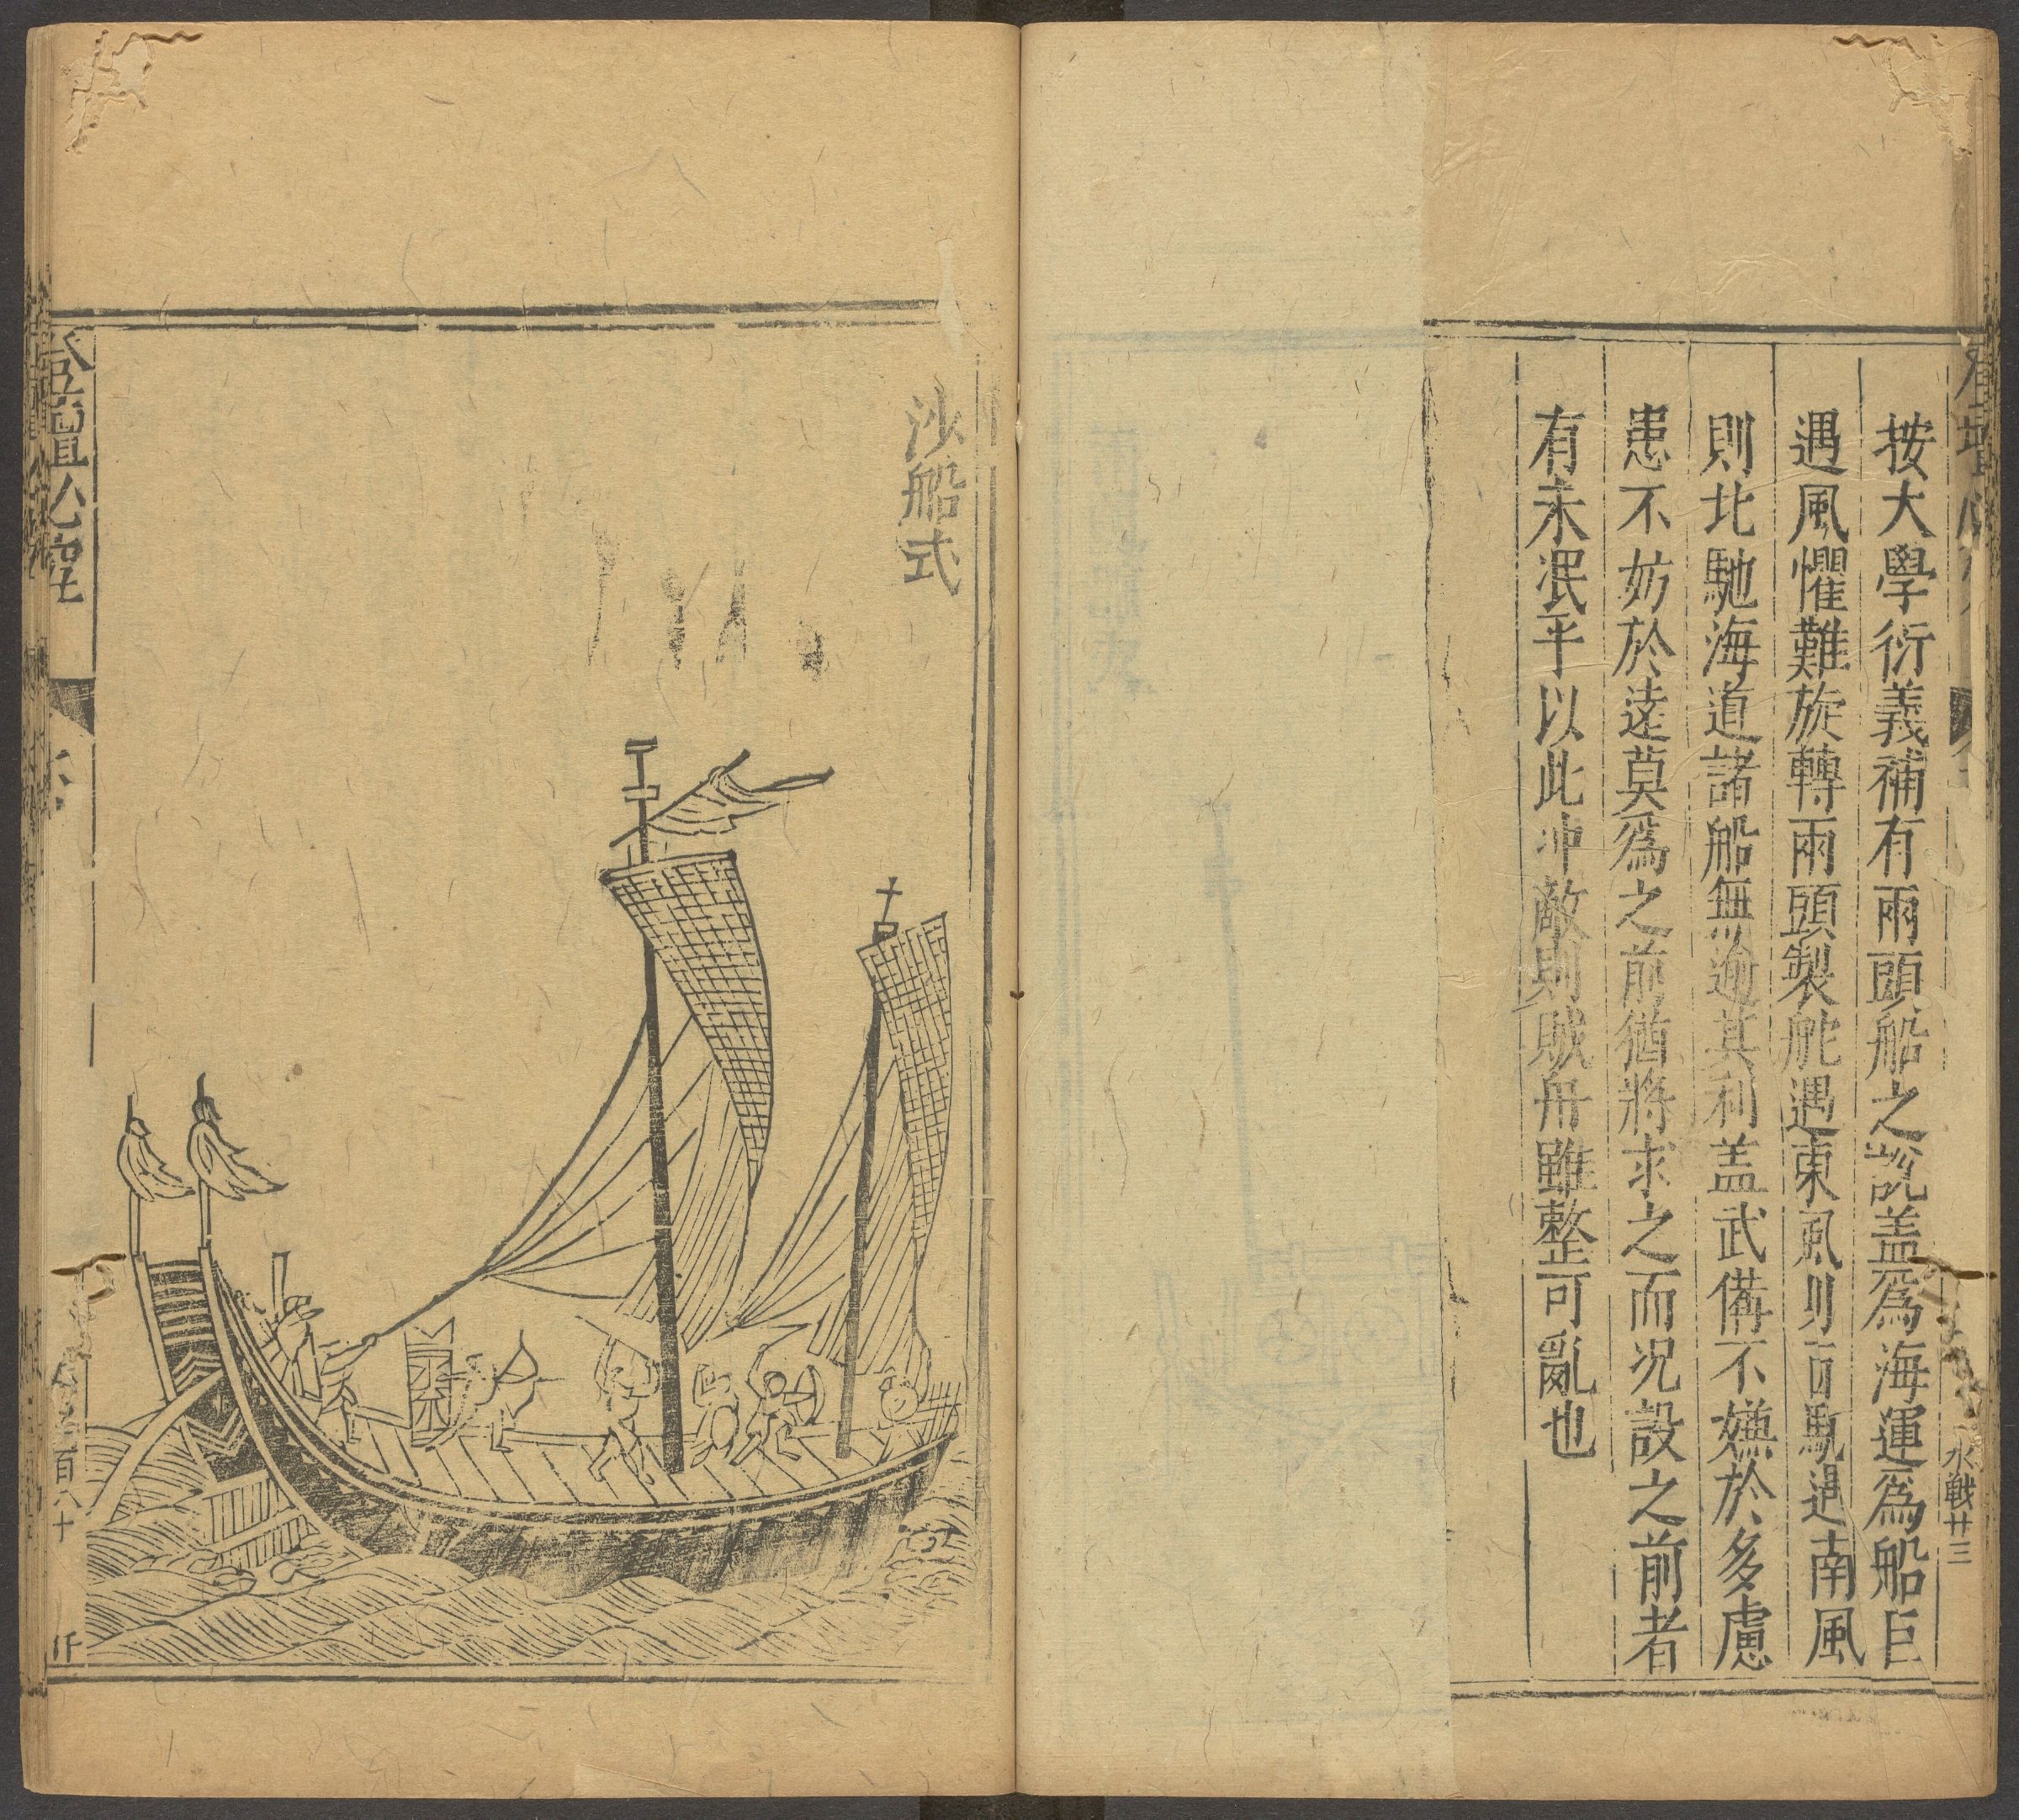 水戰廿三
按大學衍義補有兩頭船之說盖爲海運爲船巨
遇風懼難旋轉兩頭製舵遇東風則西馳遇南風
則北馳海道諸船無逾其利盖武備不嫌於多慮
患不妨於遠莫爲之前猶將求之而况設之前者
有未泯乎以此冲敵則賊舟雖整可亂也
沙船式
百八十